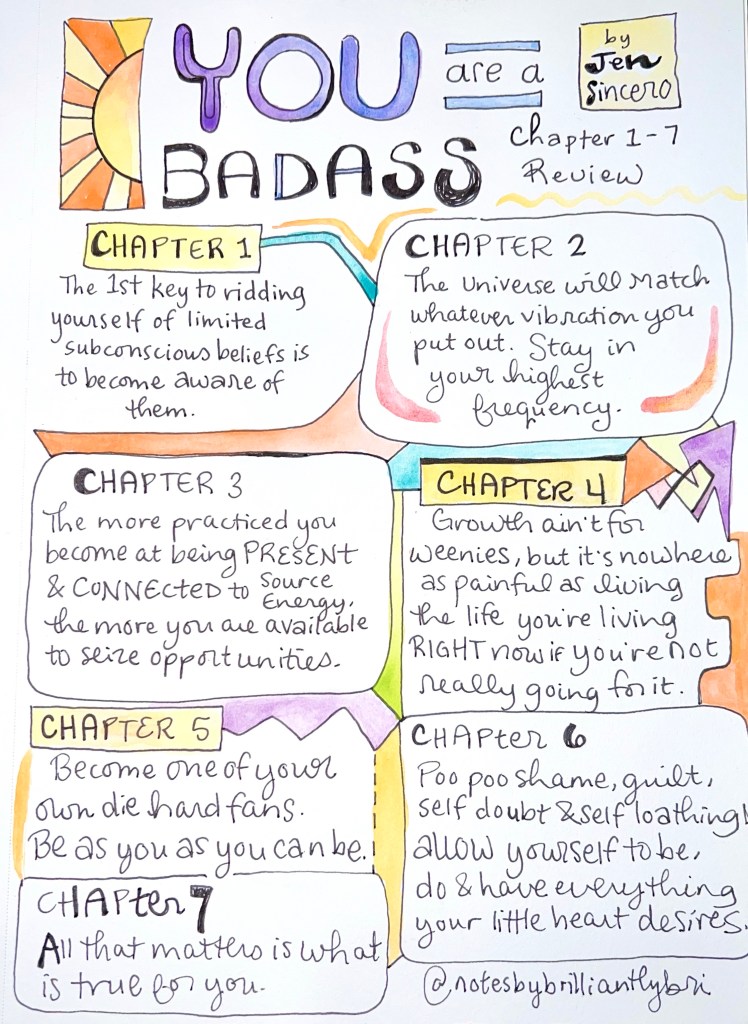 YOU
are a
by
Jen
Sincero
BADASS
Chapter 1-7
Review
CHAPTER 1
The 1st key to ridding
yourself of limited
subconscious beliefs is
to become aware of
them.
CHAPTER 2
The Universe will match
whatever vibration you
put out. Stay in
your highest
frequency.
CHAPTER 3
The more practiced you
become at being PRESENT
& CONNECTED to Source
Energy,
the more you are available
to seize opportunities.
CHAPTER 4
Growth ain't for
weenies, but it's nowhere
as painful as living
the life you're living
RIGHT now if you're not
really going for it.
CHAPTER 5
Become one of your
own die hard fans.
Be as you as you can be.
CHAPter 6
Poo poo shame, guilt,
self doubt & self loathing!
allow yourself to be,
do & have everything
your little heart desires.
CHAPter 7
All that matters is what
is true for you.
@notesbybrilliantlybri